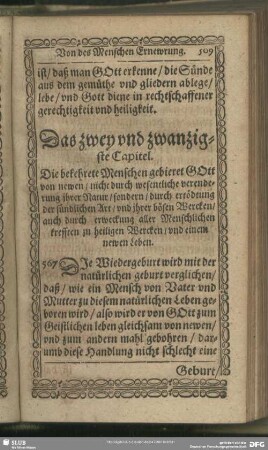 Von des Menschen Ernewrung. 509
ist/ daß man GOtt erkenne/ die Sünde
aus dem gemüthe vnd gliedern ablege/
lebe/ vnd Gott diene in rechtschaffener
gerechtigkeit vnd heiligkeit.
Das zwey vnd zwanzig-
ste Capitel.
Die bekehrete Menschen gebieret GOtt
von newen/ nicht durch wesentliche verende-
rung jhrer Natur/ sondern/ durch ertödung
der sündlichen Art/ vnd jhrer bösen Wercken/
auch durch erweckung aller Menschlichen
krefften zu heiligen Wercken/ vnd einem
newen Leben.
567 DJe Wiedergeburt wird mit der
natürlichen geburt verglichen/
daß/ wie ein Mensch von Vater vnd
Mutter zu diesem natürlichen Leben ge-
boren wird/ also wird er von GOtt zum
Geistlichen leben gleichsam von newen/
vnd zum andern mahl gebohren/ dar-
umb diese Handlung nicht schlecht eine
Geburt/
SLUB
DFG